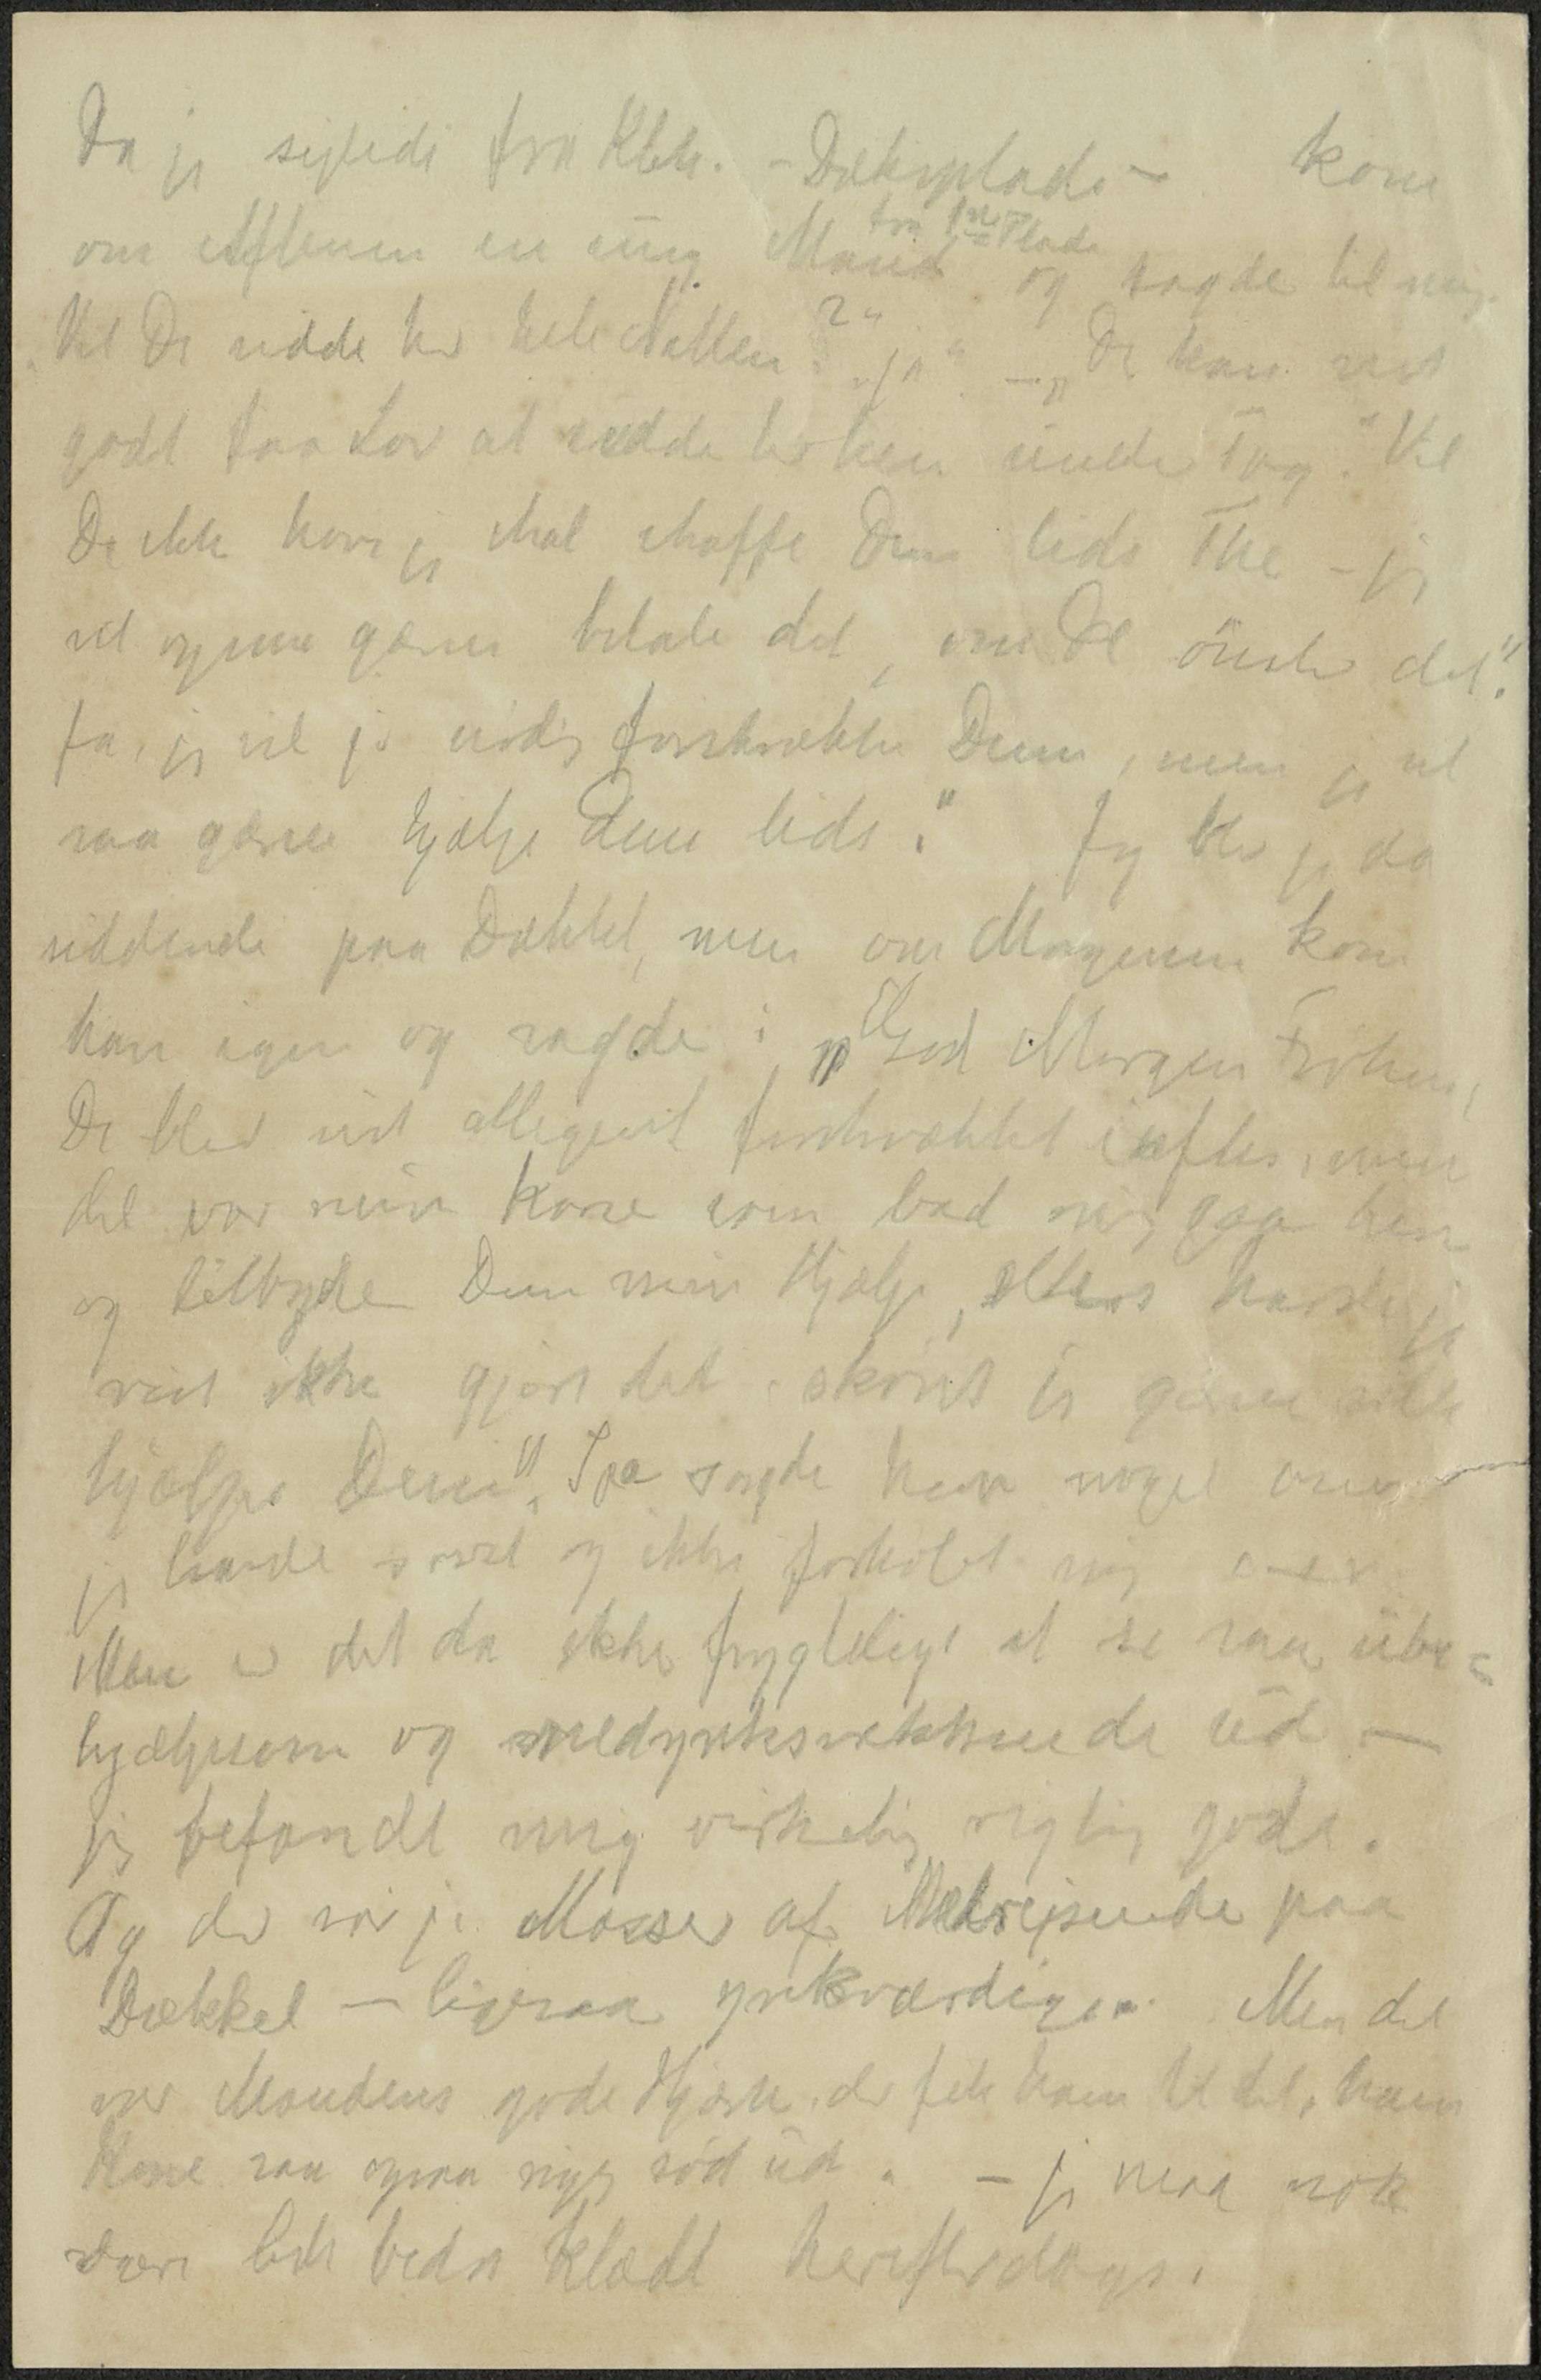 Da jeg sejlede fra Kbh. – Dæksplads – kom
om Aftenen en ung Mand fra 1ste Plads og sagde til mig.
"Vil De sidde her hele Natten?" "ja" – "De kan vist
godt faa Lov at sidde her hen under Tag." Vil
De ikke have jeg skal skaffe Dem lidt The – jeg
vil ogsaa gærne betale det, om De ønsker det".
Ja, jeg vil jo nødig forskrække Dem, men jeg vil
saa gærne hjælpe Dem lidt." Jeg blev jo da
siddende paa Dækket, men om Morgenen kom
han igen og sagde: "God Morgen Frøken,
De blev vist alligevel forskrækket iaftes, men
det var min Kone som bad mig gaa hen
og tilbyde Dem min Hjælp, ellers havde jeg
vist ikke gjort det, skønt jeg gærne vilde
hjælpe Dem". Saa sagde han noget om
jeg havde sovet og ikke forkølet mig
Men er det da ikke frygteligt at se saa ube=
hjælpsom og medynksvækkende ud –
Jeg befandt mig virkelig rigtig godt.
Og der var jo Masser af Medrejsende paa
Dækket – ligesaa ynkværdige. Men det
var Mandens gode Hjærte der fik ham til det, hans
Kone saa ogsaa rigtig sød ud. – jeg maa nok
være lidt bedre klædt herefterdags.